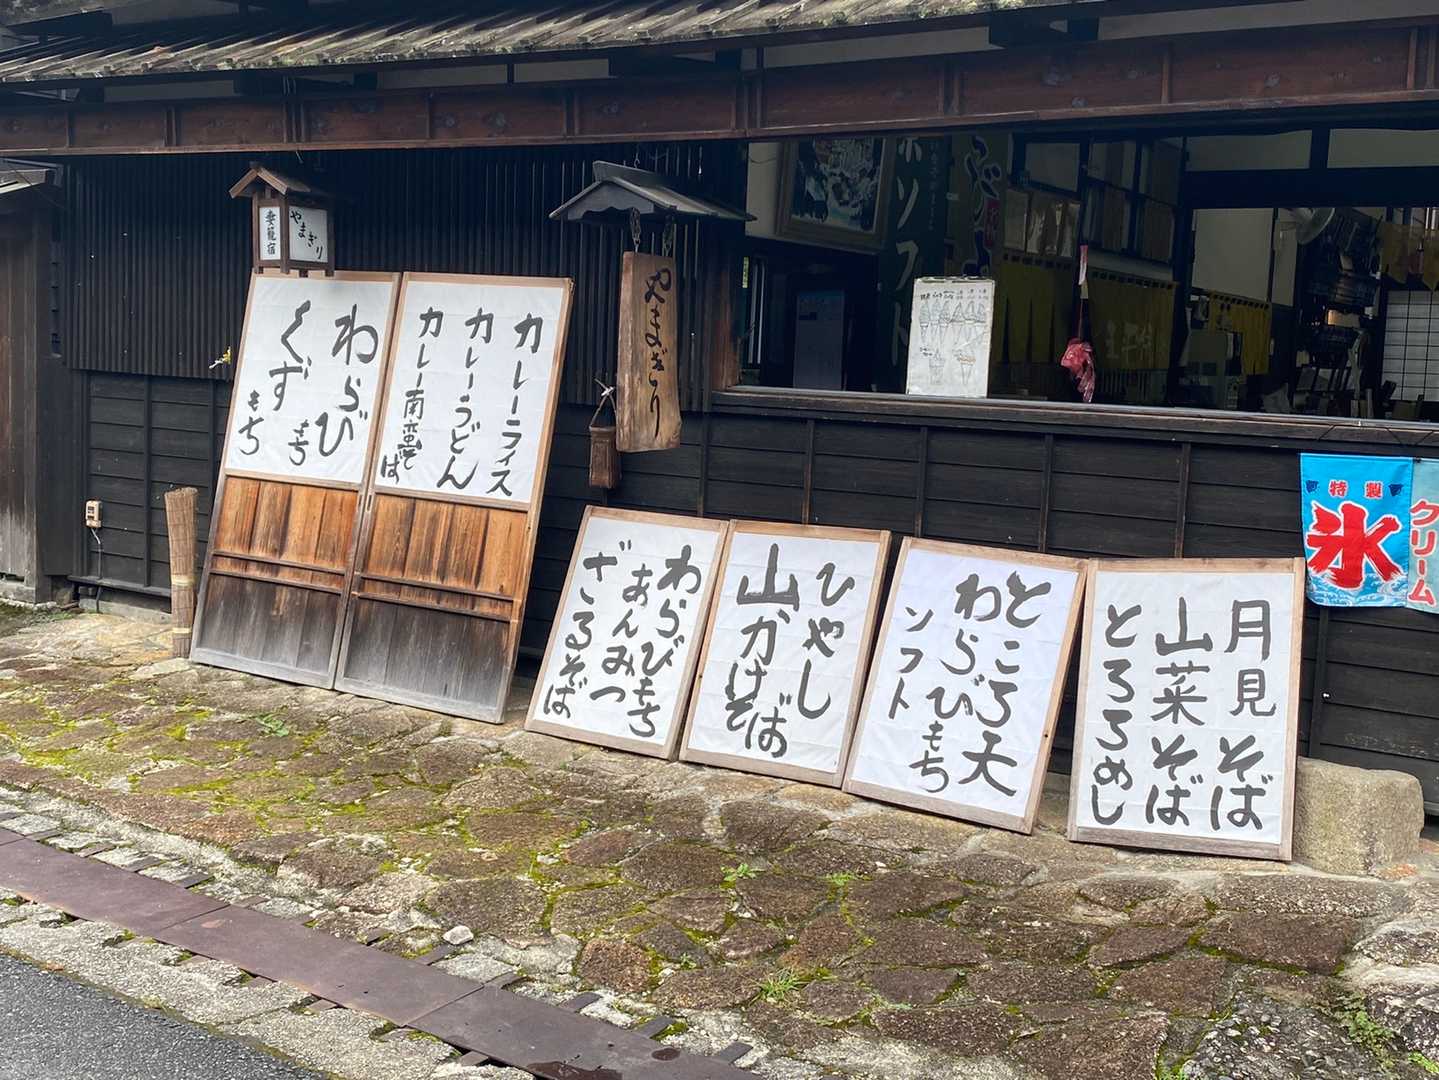 妻籠宿
やまぎり
わらびもち
くずもち
カレーライス
カレーうどん
カレー南蛮そば
やまぎり
わらびもち
あんみつ
ざるそば
ひやし
山かけそば
ところ天
わらびもち
ソフト
月見そば
山菜そば
とろろめし
ソフト
特製
氷
クリーム